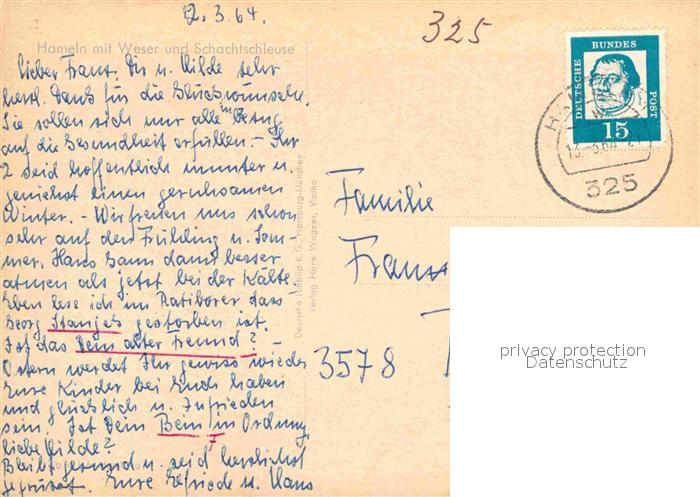 12.3.64.
325
Hameln mit Weser und Schachtschleuse
Lieber Franz, Dir u. Hilde sehr
herzl. Dank für die Glückwünsche.
Sie sollen sich nur alle in bezug
auf die Gesundheit erfüllen. - Ihr
2 seid hoffentlich munter u.
genießt einen geruhsamen
Winter. - Wir freuen uns schon
sehr auf den Frühling u. Som-
mer, Hans kann dann besser
atmen als jetzt bei der Kälte.
Eben lese ich im Ratiborer dass
Georg Stanges gestorben ist.
Ist das Dein alter Freund? -
Ostern werdet Ihr gewiss wieder
Eure Kinder bei Euch haben
und glücklich u. zufrieden
sein. Ist Dein Bein in Ordnung,
liebe Hilde?
Bleibt gesund u. seid herzlichst
gegrüsst. Eure Elfriede u. Hans
Deutsche Luftbild K.G., Hamburg-München
Verlag Hans Wagner, Vlotho
DEUTSCHE BUNDES POST
15
325
Familie
Franz
3578
privacy protection
Datenschutz